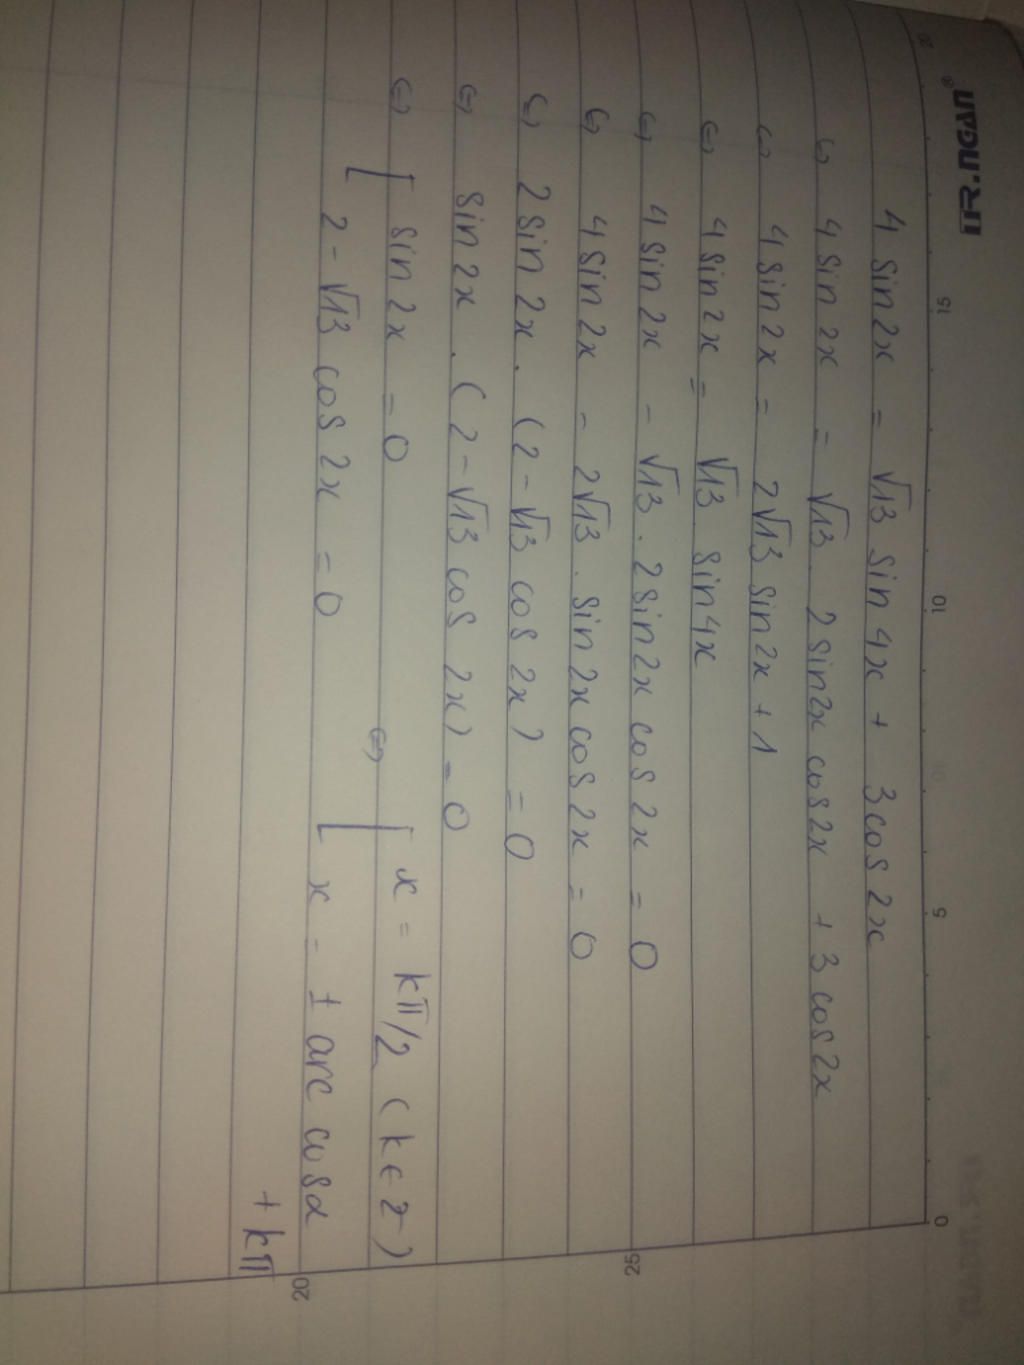 TR.NGAN®
20 15 10 5 0
4 sin 2x = √13 sin 4x + 3cos 2x
⇔ 4 sin 2x = √13 . 2 sin2x cos2x + 3 cos2x
⇔ 4 sin 2x = 2√13 sin 2x + 1
⇔ 4 sin 2x = √13 . sin 4x
⇔ 4 sin 2x - √13 . 2 sin 2x cos 2x = 0
25
⇔ 4 sin 2x - 2√13 . sin 2x cos 2x = 0
⇔ 2 sin 2x . (2 - √13 cos 2x) = 0
⇔ sin 2x . (2 - √13 cos 2x) = 0
⇔ [ sin 2x = 0 ⇔ [ x = kπ/2 (k ∈ Z)
2 - √13 cos 2x = 0 x = ± arc cosα
20
+ kπ